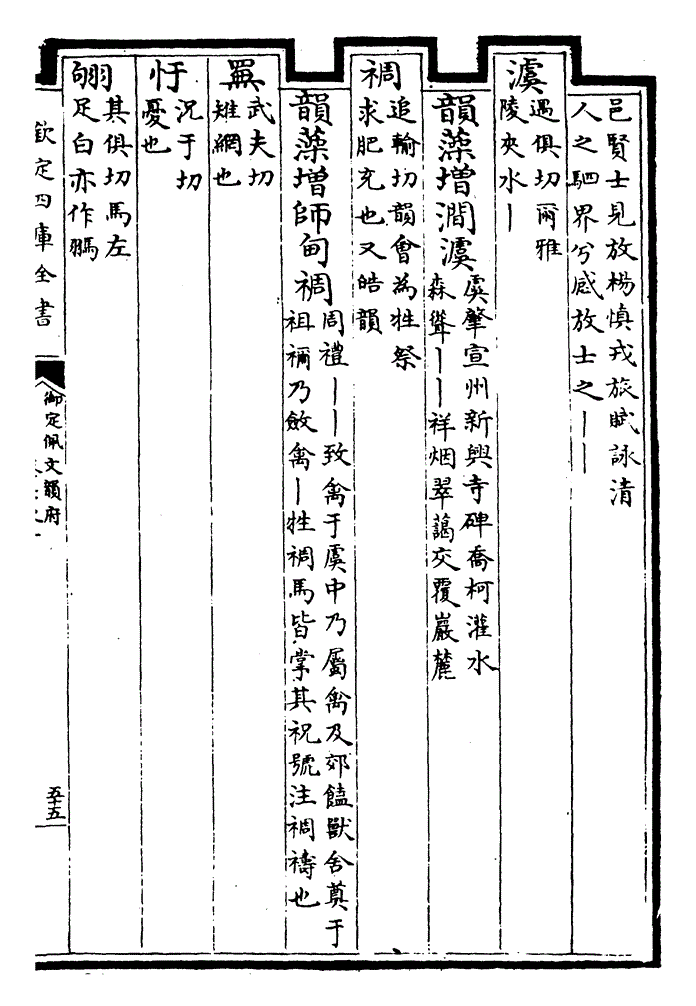 邑賢士見放楊慎戎旅賦詠清
人之駟界兮感放士之丨丨
澞
遇俱切爾雅
陵夾水丨
韻藻增澗澞
虞肇宣州新興寺碑喬柯灌水
森聳丨丨祥烟翠藹交覆巖麓
禂
追輸切韻會為牲祭
求肥充也又皓韻
韻藻增師甸禂
周禮丨丨致禽于虞中乃屬禽及郊饁獸舍奠于
祖禰乃斂禽丨牲禂馬皆掌其祝號注禂禱也
武夫切
雉網也
況于切
憂也
翑
其俱切馬左
足白亦作
欽定四庫全書
御定佩文韻府
五十五